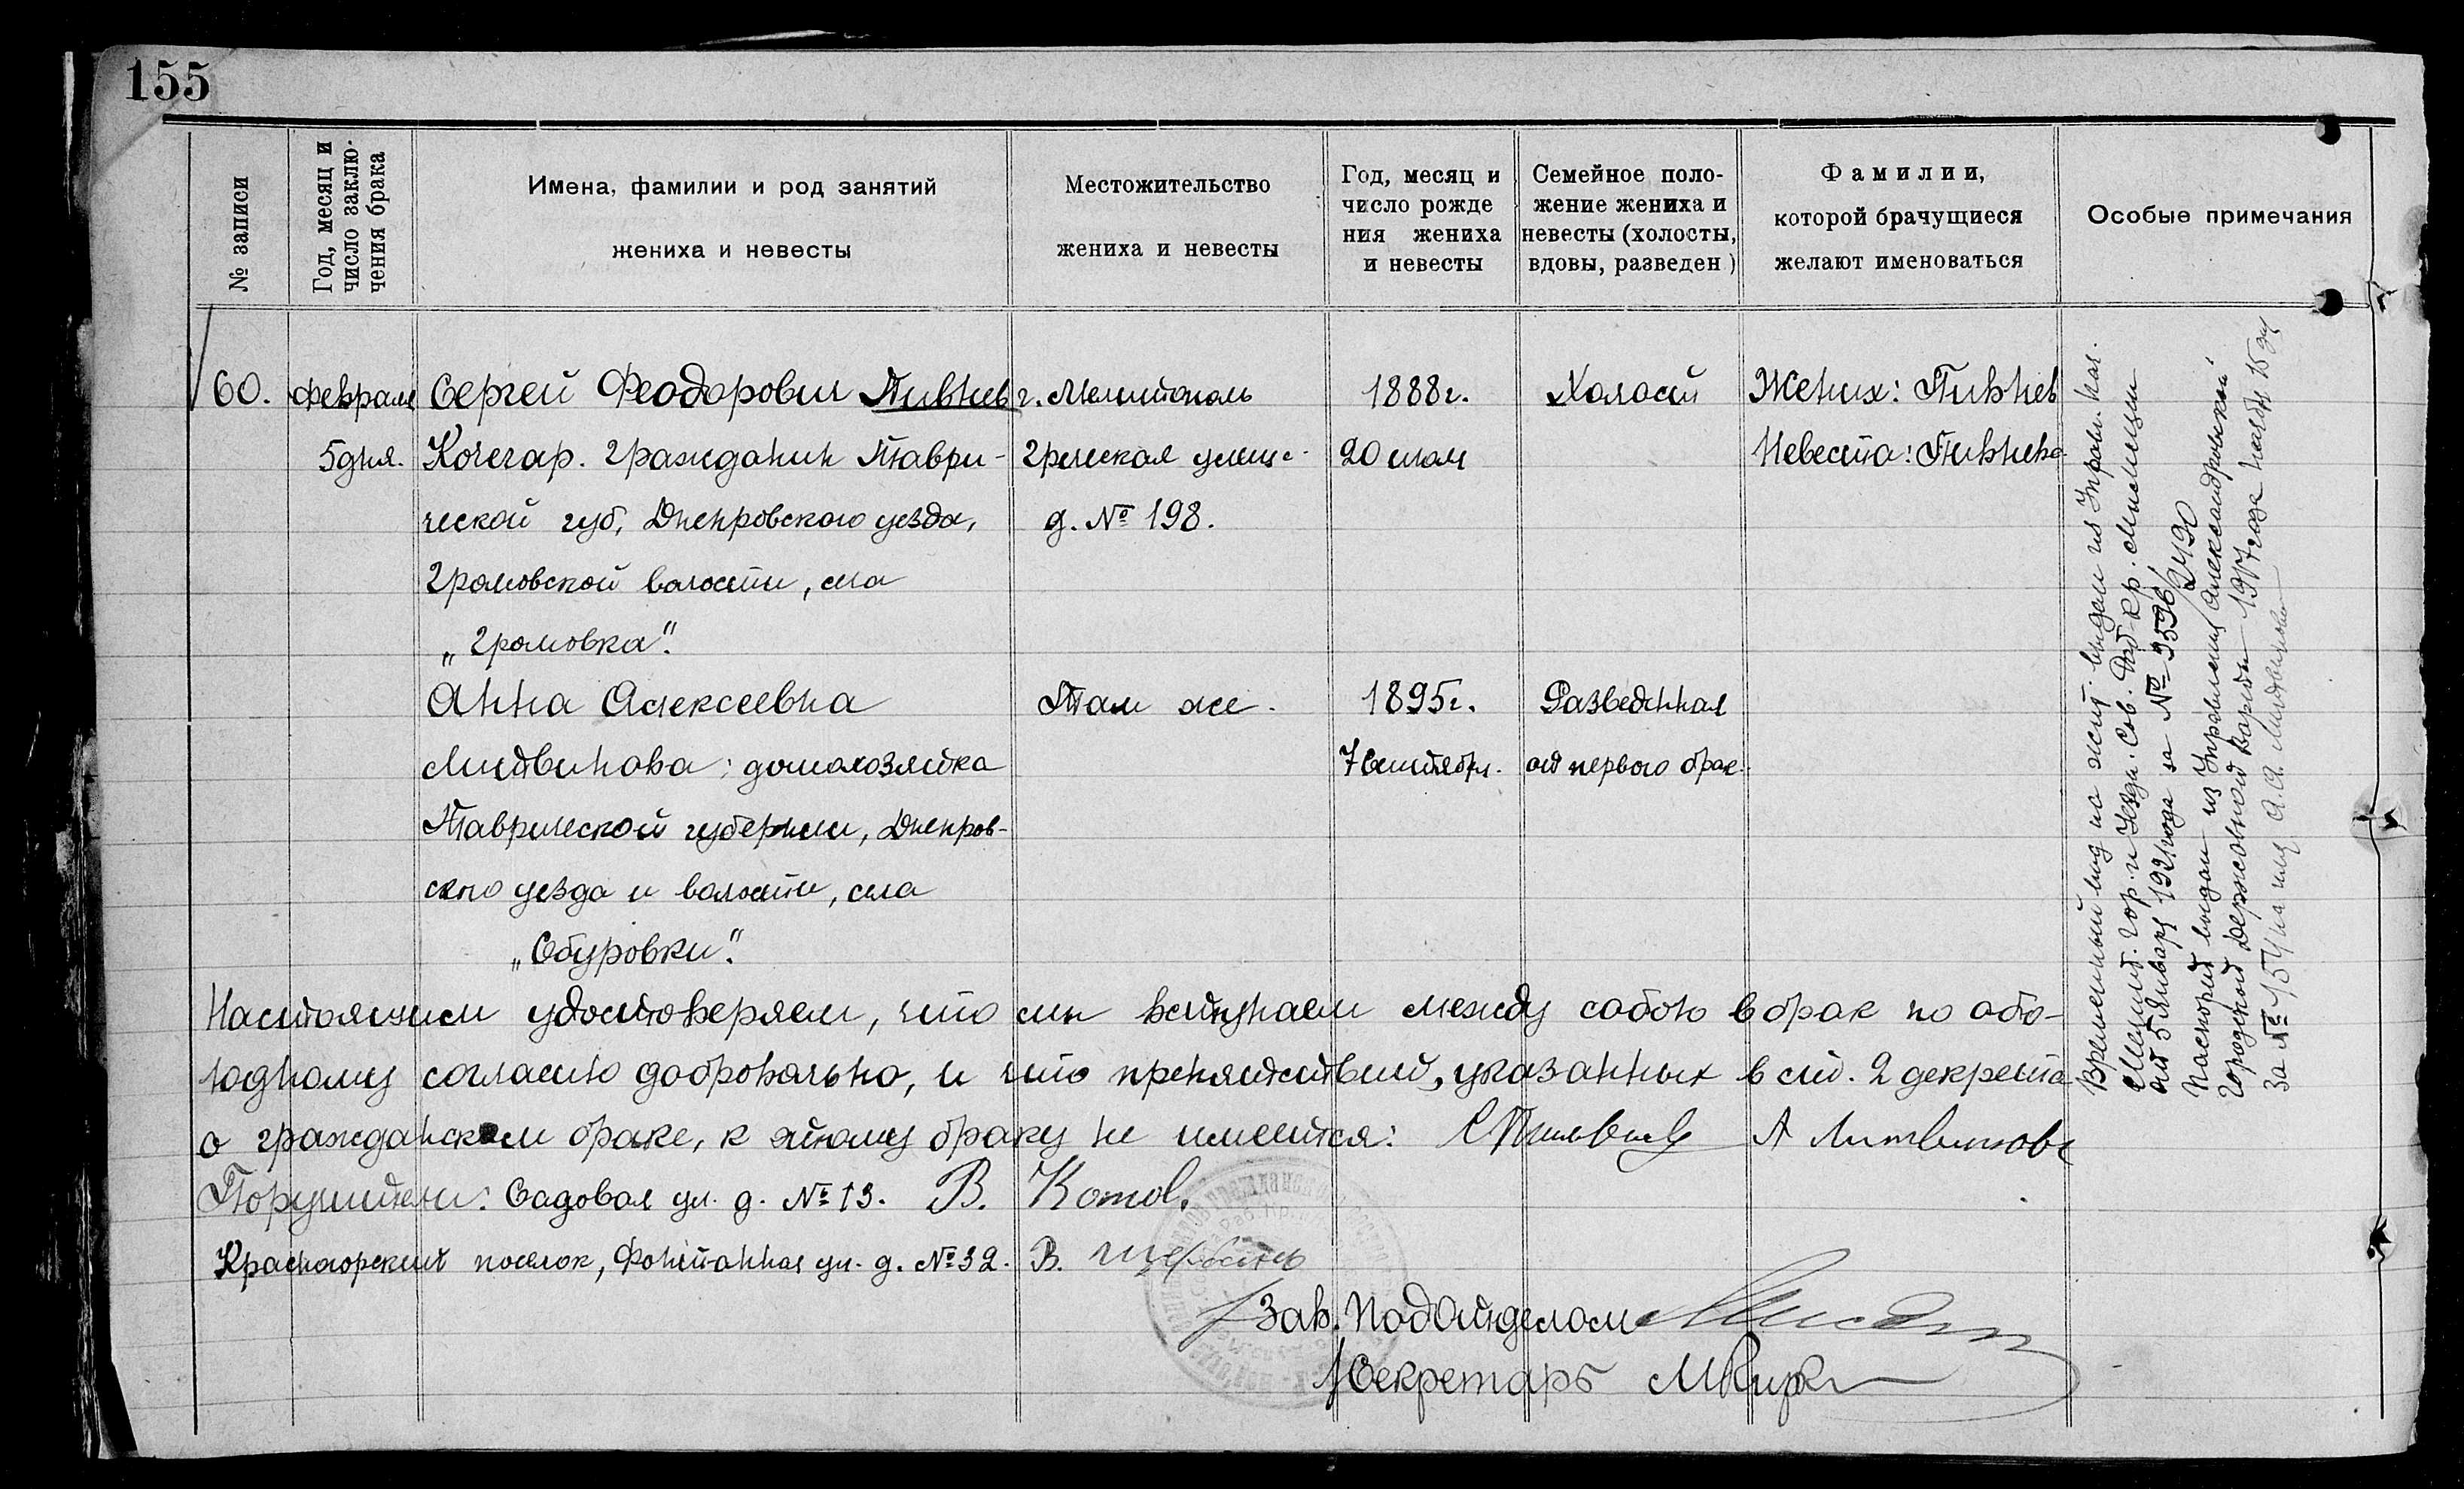 155
№ записи
Год, месяц и
число заклю-
чения брака
Имена, фамилии и род занятий
жениха и невесты
Местожительство
жениха и невесты
Год, месяц и
число рожде
ния жениха
и невесты
Семейное поло-
жение жениха и
невесты (холосты,
вдовы, разведен)
Фамилии,
которой брачущиеся
желают именоваться
Особые примечания
60.
февраля
5 дня.
Сергей Феодорович Пивнев
Кочегар. гражданин Таври-
ческой губ, Днепровского уезда,
Громовской волости, села
„Громовка".
г. Мелитополь
Греческая улице.
д. № 198.
1888г.
20 июля
Холост
Жених: Пивнев
Невеста: Пивнева
Анна Алексеевна
Литвинова; домохозяйка
Таврической губернии, Днепров-
ского уезда и волости, села
„Збуровки".
Там же.
1895г.
7 Сентября.
Разведенная
от первого брак.
Настоящим удостоверяем, что мы вступаем между собою в брак по обо-
юдному согласию добровольно, и что препятствий, указанных в ст. 2 декрета
о гражданском браке, к этому браку не имеется: А Литвинова
Поручители: Садовая ул. д. № 13. В. Котов.
Красногорский поселок, Фонтанная ул. д. № 32. В.
Зав. Подотделом
Секретарь
Временный вид на жит. выдан из Управл. Нач.
Мелит. гор. и Уезд. Сов. Раб-Кр. Милиции
от 5 Января 1921 года за № 3596/2490
Паспорт выдан из Управления Александровской
Городской Державной Варты 1917 года 15 дня
за № 154 на имя А. А. Литвиновой